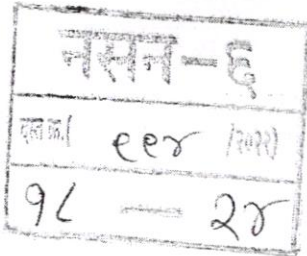 नसन-६
दस्त क्र.( ९९४
१८ — २४